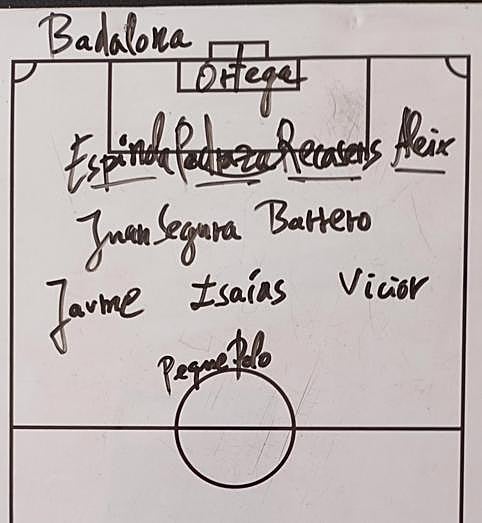 Badalona
Ortega
Espinda Pedraza Recasens Aleix
Juan Segura Barrero
Jaume Isaías Vicior
Peque Polo